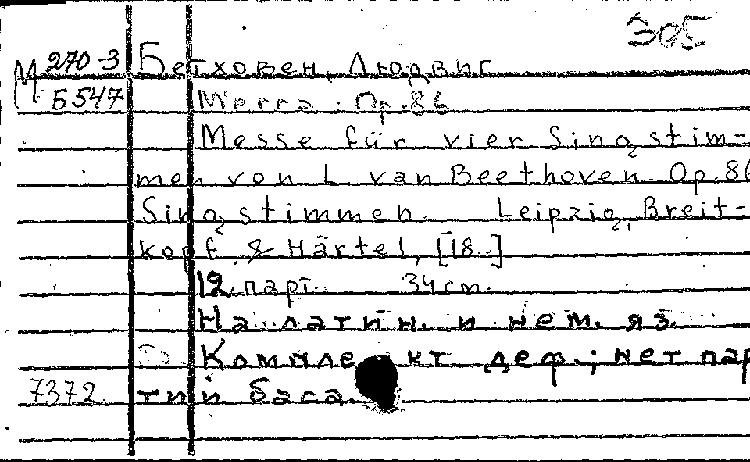 305
М 270-3 Бетховен, Людвиг
Б 547 Месса. Op. 86
Messe für vier Singstim-
men von L. van Beethoven Op. 86
Singstimmen. Leipzig, Breit-
kopf & Härtel, [18..]
12 парт. 34 cm.
На латин. и нем. яз.
Комплект деф.; нет пар
7372 тий баса.